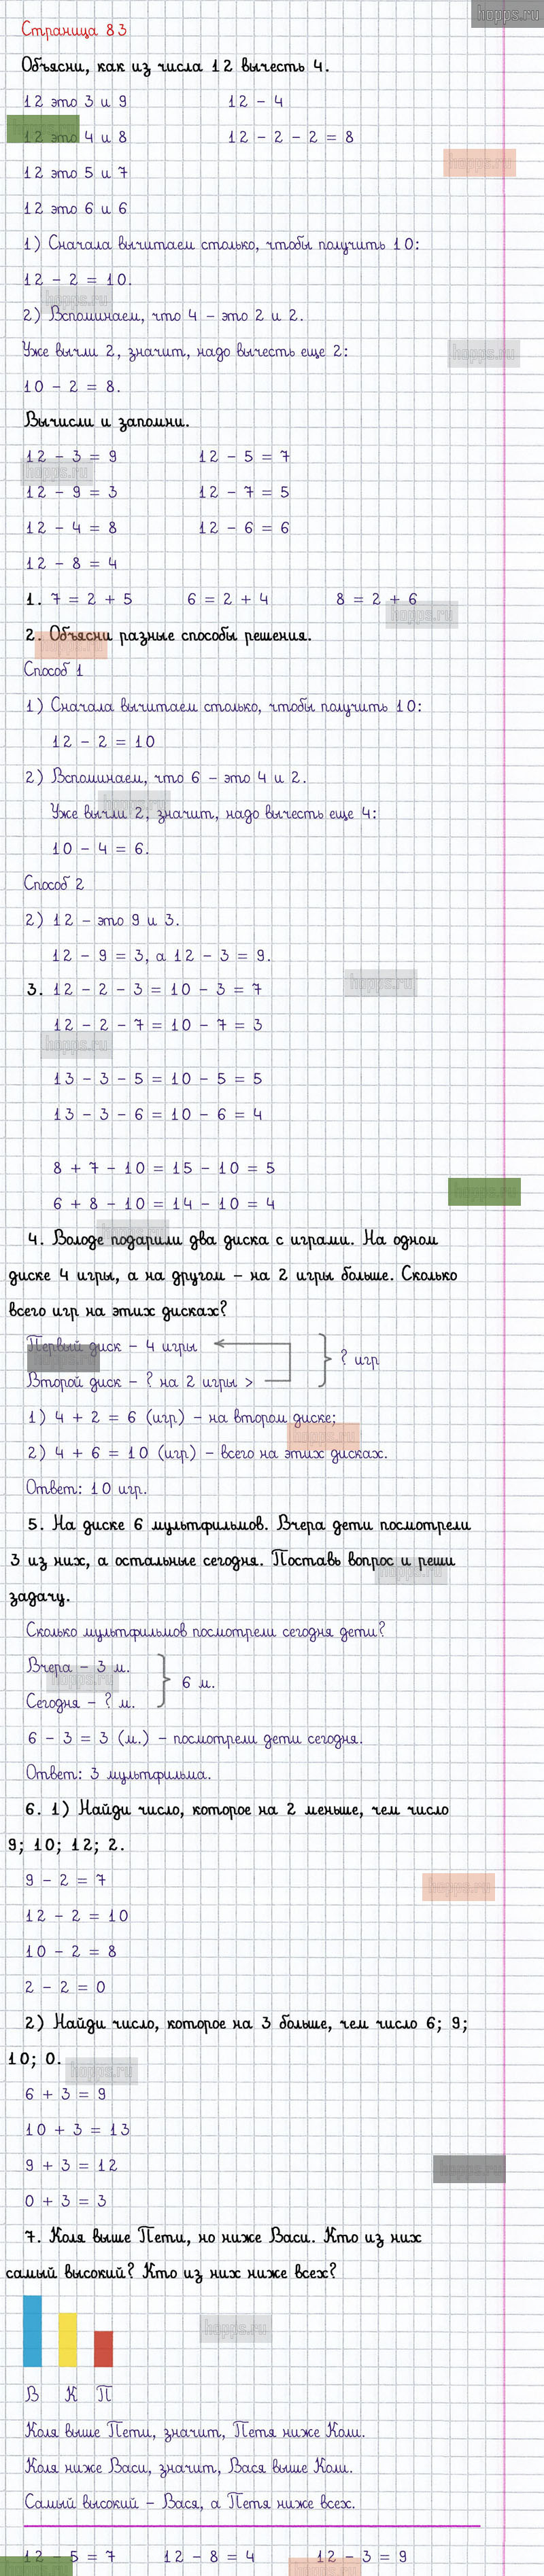 hopps.ru
Страница 83
Объясни, как из числа 12 вычесть 4.
12 это 3 и 9 12 - 4
12 это 4 и 8 12 - 2 - 2 = 8
hopps.ru
12 это 5 и 7
12 это 6 и 6
1) Сначала вычитаем столько, чтобы получить 10:
12 - 2 = 10.
hopps.ru
2) Вспоминаем, что 4 - это 2 и 2.
Уже вычли 2, значит, надо вычесть еще 2:
hopps.ru
10 - 2 = 8.
Вычисли и запомни.
12 - 3 = 9 12 - 5 = 7
hopps.ru
12 - 9 = 3 12 - 7 = 5
12 - 4 = 8 12 - 6 = 6
12 - 8 = 4
1. 7 = 2 + 5 6 = 2 + 4 8 = 2 + 6
hopps.ru
2. Объясни разные способы решения.
hopps.ru
Способ 1
1) Сначала вычитаем столько, чтобы получить 10:
12 - 2 = 10
2) Вспоминаем, что 6 - это 4 и 2.
hopps.ru
Уже вычли 2, значит, надо вычесть еще 4:
10 - 4 = 6.
Способ 2
2) 12 - это 9 и 3.
12 - 9 = 3, а 12 - 3 = 9.
hopps.ru
3. 12 - 2 - 3 = 10 - 3 = 7
12 - 2 - 7 = 10 - 7 = 3
hopps.ru
13 - 3 - 5 = 10 - 5 = 5
13 - 3 - 6 = 10 - 6 = 4
8 + 7 - 10 = 15 - 10 = 5
hopps.ru
6 + 8 - 10 = 14 - 10 = 4
hopps.ru
4. Володе подарили два диска с играми. На одном
диске 4 игры, а на другом - на 2 игры больше. Сколько
всего игр на этих дисках?
Первый диск - 4 игры
hopps.ru
? игр
Второй диск - ? на 2 игры >
1) 4 + 2 = 6 (игр) - на втором диске;
hopps.ru
2) 4 + 6 = 10 (игр) - всего на этих дисках.
Ответ: 10 игр.
5. На диске 6 мультфильмов. Вчера дети посмотрели
3 из них, а остальные сегодня. Поставь вопрос и реши
hopps.ru
задачу.
Сколько мультфильмов посмотрели сегодня дети?
Вчера - 3 м.
hopps.ru
6 м.
Сегодня - ? м.
6 - 3 = 3 (м.) - посмотрели дети сегодня.
Ответ: 3 мультфильма.
6. 1) Найди число, которое на 2 меньше, чем число
9; 10; 12; 2.
9 - 2 = 7
hopps.ru
12 - 2 = 10
10 - 2 = 8
2 - 2 = 0
2) Найди число, которое на 3 больше, чем число 6; 9;
10; 0.
hopps.ru
6 + 3 = 9
10 + 3 = 13
9 + 3 = 12
hopps.ru
0 + 3 = 3
7. Коля выше Пети, но ниже Васи. Кто из них
самый высокий? Кто из них ниже всех?
hopps.ru
В К П
Коля выше Пети, значит, Петя ниже Коли.
Коля ниже Васи, значит, Вася выше Коли.
Самый высокий - Вася, а Петя ниже всех.
12 - 5 = 7 12 - 8 = 4 12 - 3 = 9
hopps.ru